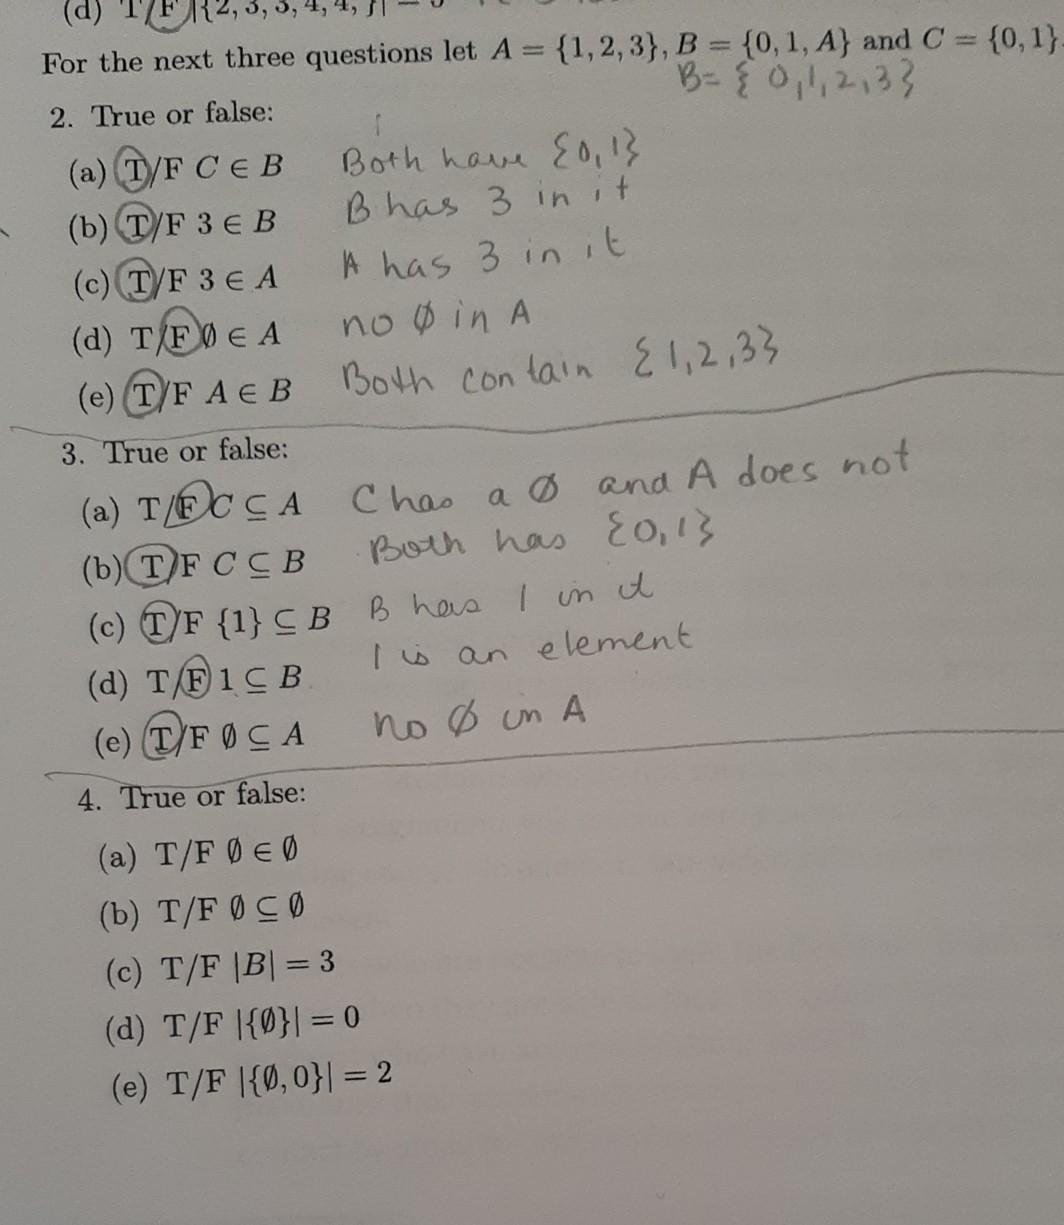 (d) T/F |{2, 3, 3, 4, 4, }| =
For the next three questions let A = {1, 2, 3}, B = {0, 1, A} and C = {0, 1}.
B = { 0,1,2,3}
2. True or false:
(a) T/F C ∈ B Both have {0,1}
(b) T/F 3 ∈ B B has 3 in it
(c) T/F 3 ∈ A A has 3 in it
(d) T/F ∅ ∈ A no ∅ in A
(e) T/F A ∈ B Both contain {1,2,3}
3. True or false:
(a) T/F C ⊆ A C has a ∅ and A does not
(b) T/F C ⊆ B Both has {0,1}
(c) T/F {1} ⊆ B B has 1 in it
(d) T/F 1 ⊆ B 1 is an element
(e) T/F ∅ ⊆ A no ∅ in A
4. True or false:
(a) T/F ∅ ∈ ∅
(b) T/F ∅ ⊆ ∅
(c) T/F |B| = 3
(d) T/F |{∅}| = 0
(e) T/F |{∅, 0}| = 2